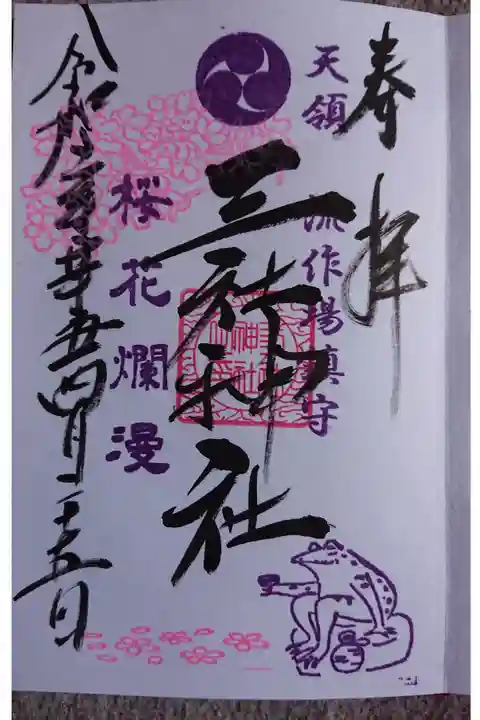 奉拝
天領
流作場鎮守
三社神社
桜花爛漫
令和五年四月十五日